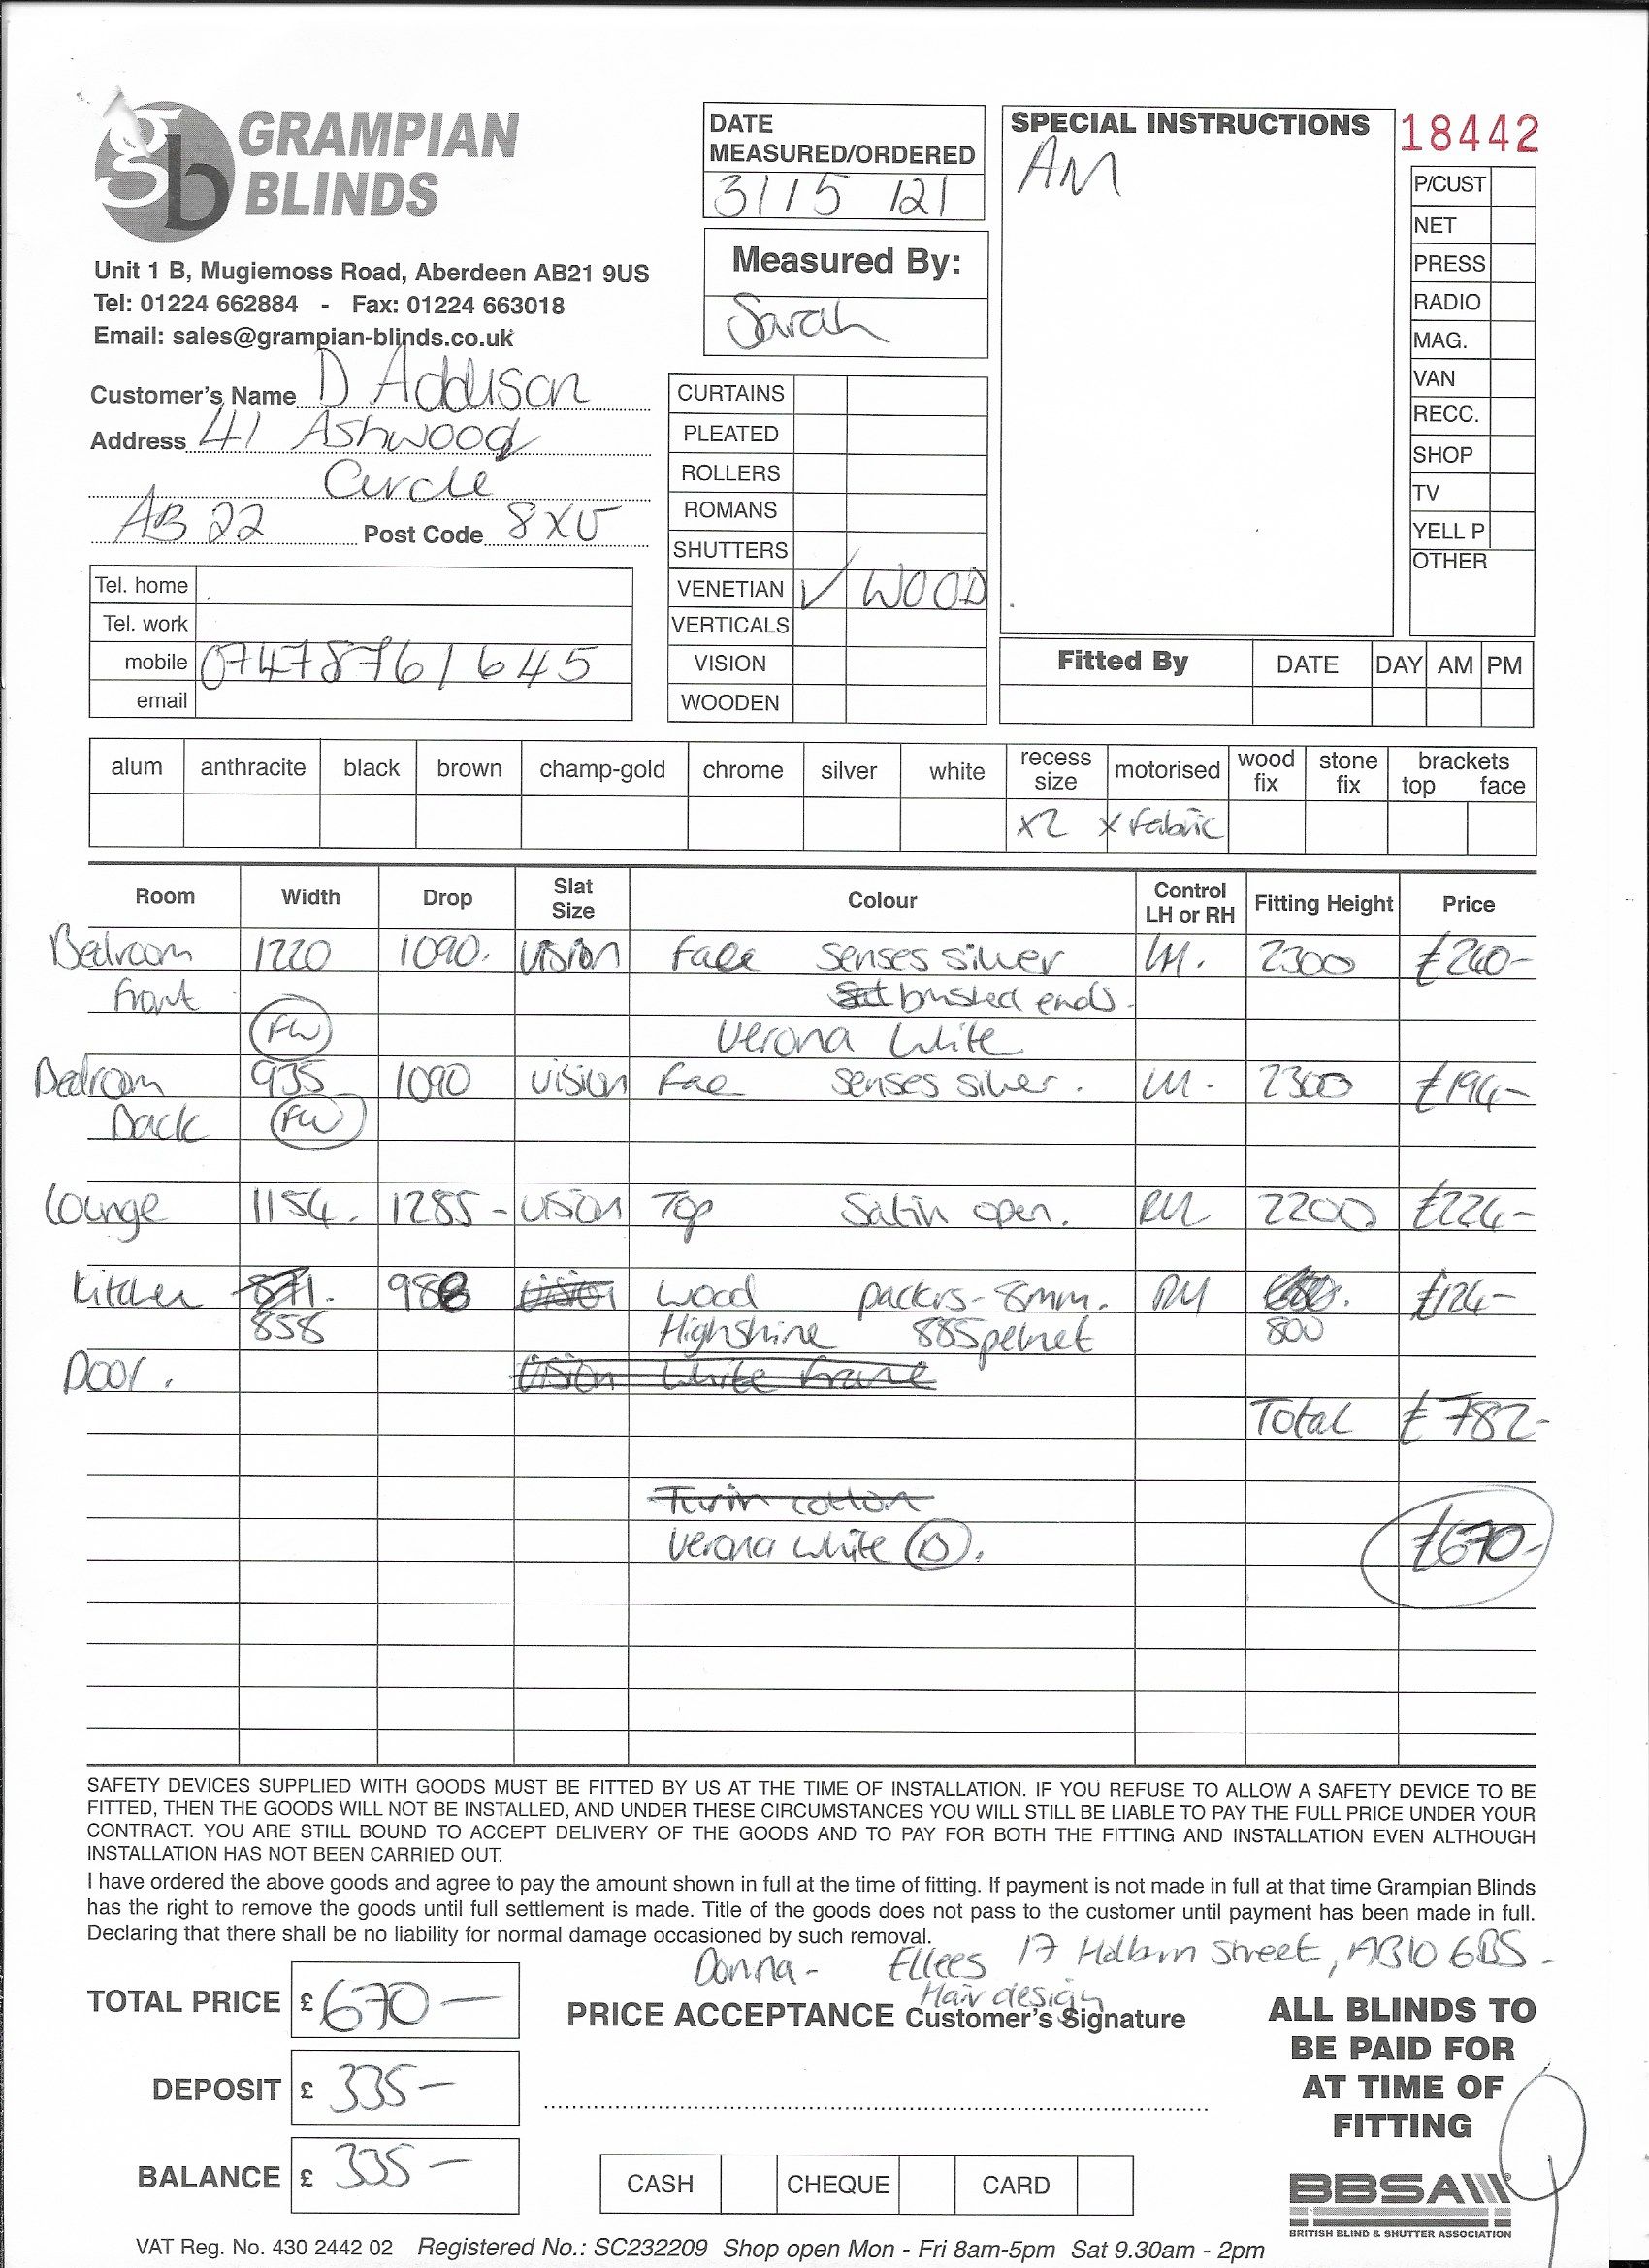 gb GRAMPIAN
BLINDS
Unit 1 B, Mugiemoss Road, Aberdeen AB21 9US
Tel: 01224 662884 - Fax: 01224 663018
Email: sales@grampian-blinds.co.uk
DATE
MEASURED/ORDERED
31/5/21
Measured By:
Sarah
SPECIAL INSTRUCTIONS
AM
18442
P/CUST
NET
PRESS
RADIO
MAG.
VAN
RECC.
SHOP
TV
YELL P
OTHER
Customer's Name D Addison
Address 41 Ashwood
Circle
AB22 Post Code 8XU
Tel. home
Tel. work
mobile 07478761645
email
CURTAINS
PLEATED
ROLLERS
ROMANS
SHUTTERS
VENETIAN ✓ WOOD
VERTICALS
VISION
WOODEN
Fitted By DATE DAY AM PM
alum anthracite black brown champ-gold chrome silver white recess size motorised wood fix stone fix brackets top face
x2 x Fabric
Room Width Drop Slat Size Colour Control LH or RH Fitting Height Price
Bedroom 1220 1090. vision Face senses silver LH. 2300 £240-
front brushed ends.
FW Verona White
Bedroom 935 1090 vision Face senses silver. LH. 2300 £194-
Back FW
Lounge 1154. 1285- vision Top Satin open. RH 2200 £224-
Kitchen 871. 988 vision wood packrs-8mm. RH £124-
858 Highshine 885 pelnet 800
Door. vision white frame
Total £782-
Turin cotton
Verona white (B). £670-
SAFETY DEVICES SUPPLIED WITH GOODS MUST BE FITTED BY US AT THE TIME OF INSTALLATION. IF YOU REFUSE TO ALLOW A SAFETY DEVICE TO BE
FITTED, THEN THE GOODS WILL NOT BE INSTALLED, AND UNDER THESE CIRCUMSTANCES YOU WILL STILL BE LIABLE TO PAY THE FULL PRICE UNDER YOUR
CONTRACT. YOU ARE STILL BOUND TO ACCEPT DELIVERY OF THE GOODS AND TO PAY FOR BOTH THE FITTING AND INSTALLATION EVEN ALTHOUGH
INSTALLATION HAS NOT BEEN CARRIED OUT.
I have ordered the above goods and agree to pay the amount shown in full at the time of fitting. If payment is not made in full at that time Grampian Blinds
has the right to remove the goods until full settlement is made. Title of the goods does not pass to the customer until payment has been made in full.
Declaring that there shall be no liability for normal damage occasioned by such removal.
Donna - Ellees 17 Holburn Street, AB10 6BS -
Hair design
TOTAL PRICE £ 670-
PRICE ACCEPTANCE Customer's Signature
DEPOSIT £ 335-
BALANCE £ 335-
CASH CHEQUE CARD
ALL BLINDS TO
BE PAID FOR
AT TIME OF
FITTING
BBSA
BRITISH BLIND & SHUTTER ASSOCIATION
VAT Reg. No. 430 2442 02 Registered No.: SC232209 Shop open Mon - Fri 8am-5pm Sat 9.30am - 2pm